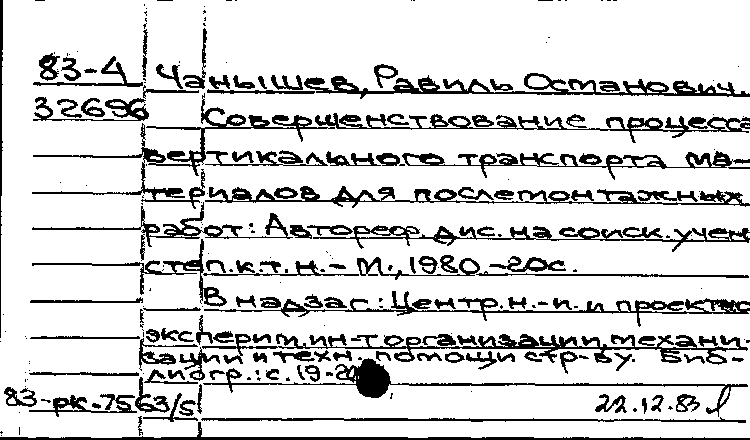 83-4 Чанышев, Равиль Османович.
32696 Совершенствование процесса
вертикального транспорта ма-
териалов для послемонтажных
работ: Автореф. дис. на соиск. учен
степ. к.т.н. - М., 1980. - 20с.
В надзаг.: Центр. н.-и. и проектно
эксперим. ин-т организации, механи-
зации и техн. помощи стр-ву. Биб-
лиогр.: с. 19-20
83-рк-7563/5 22.12.83